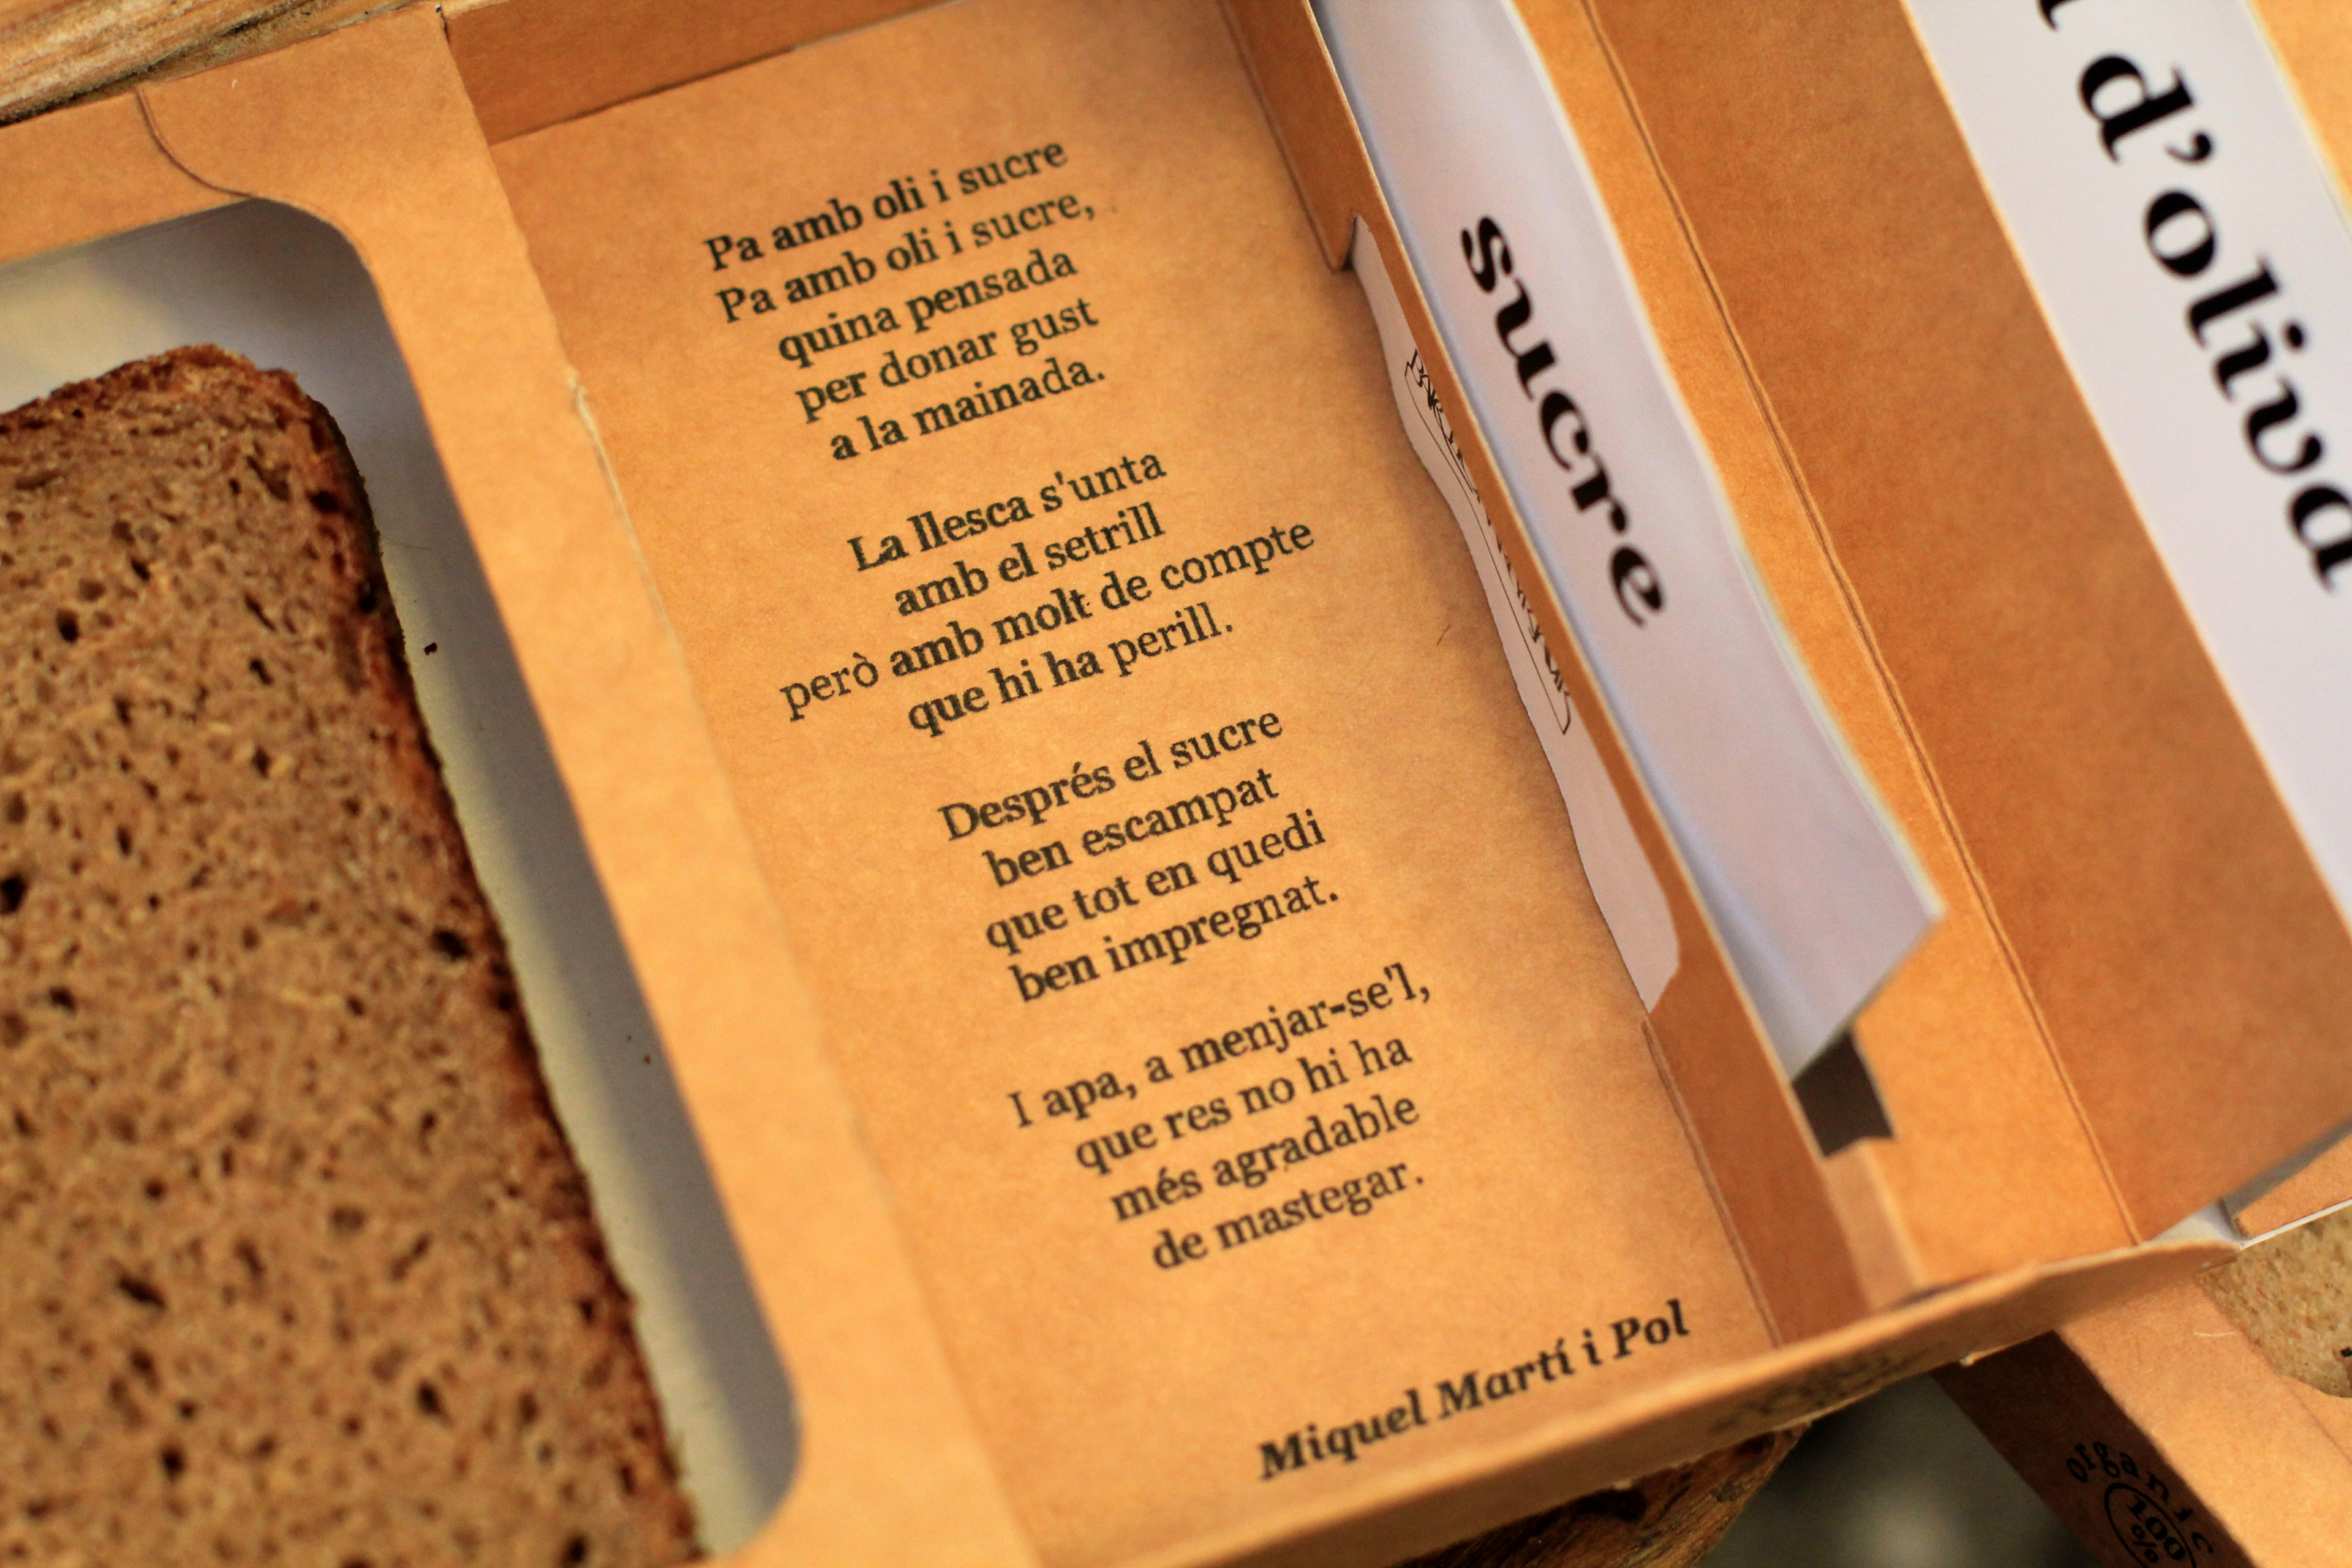 Pa amb oli i sucre
Pa amb oli i sucre,
quina pensada
per donar gust
a la mainada.
La llesca s'unta
amb el setrill
però amb molt de compte
que hi ha perill.
Després el sucre
ben escampat
que tot en quedi
ben impregnat.
I apa, a menjar-se'l,
que res no hi ha
més agradable
de mastegar.
Miquel Martí i Pol
sucre
d'oliva
organic
100
%